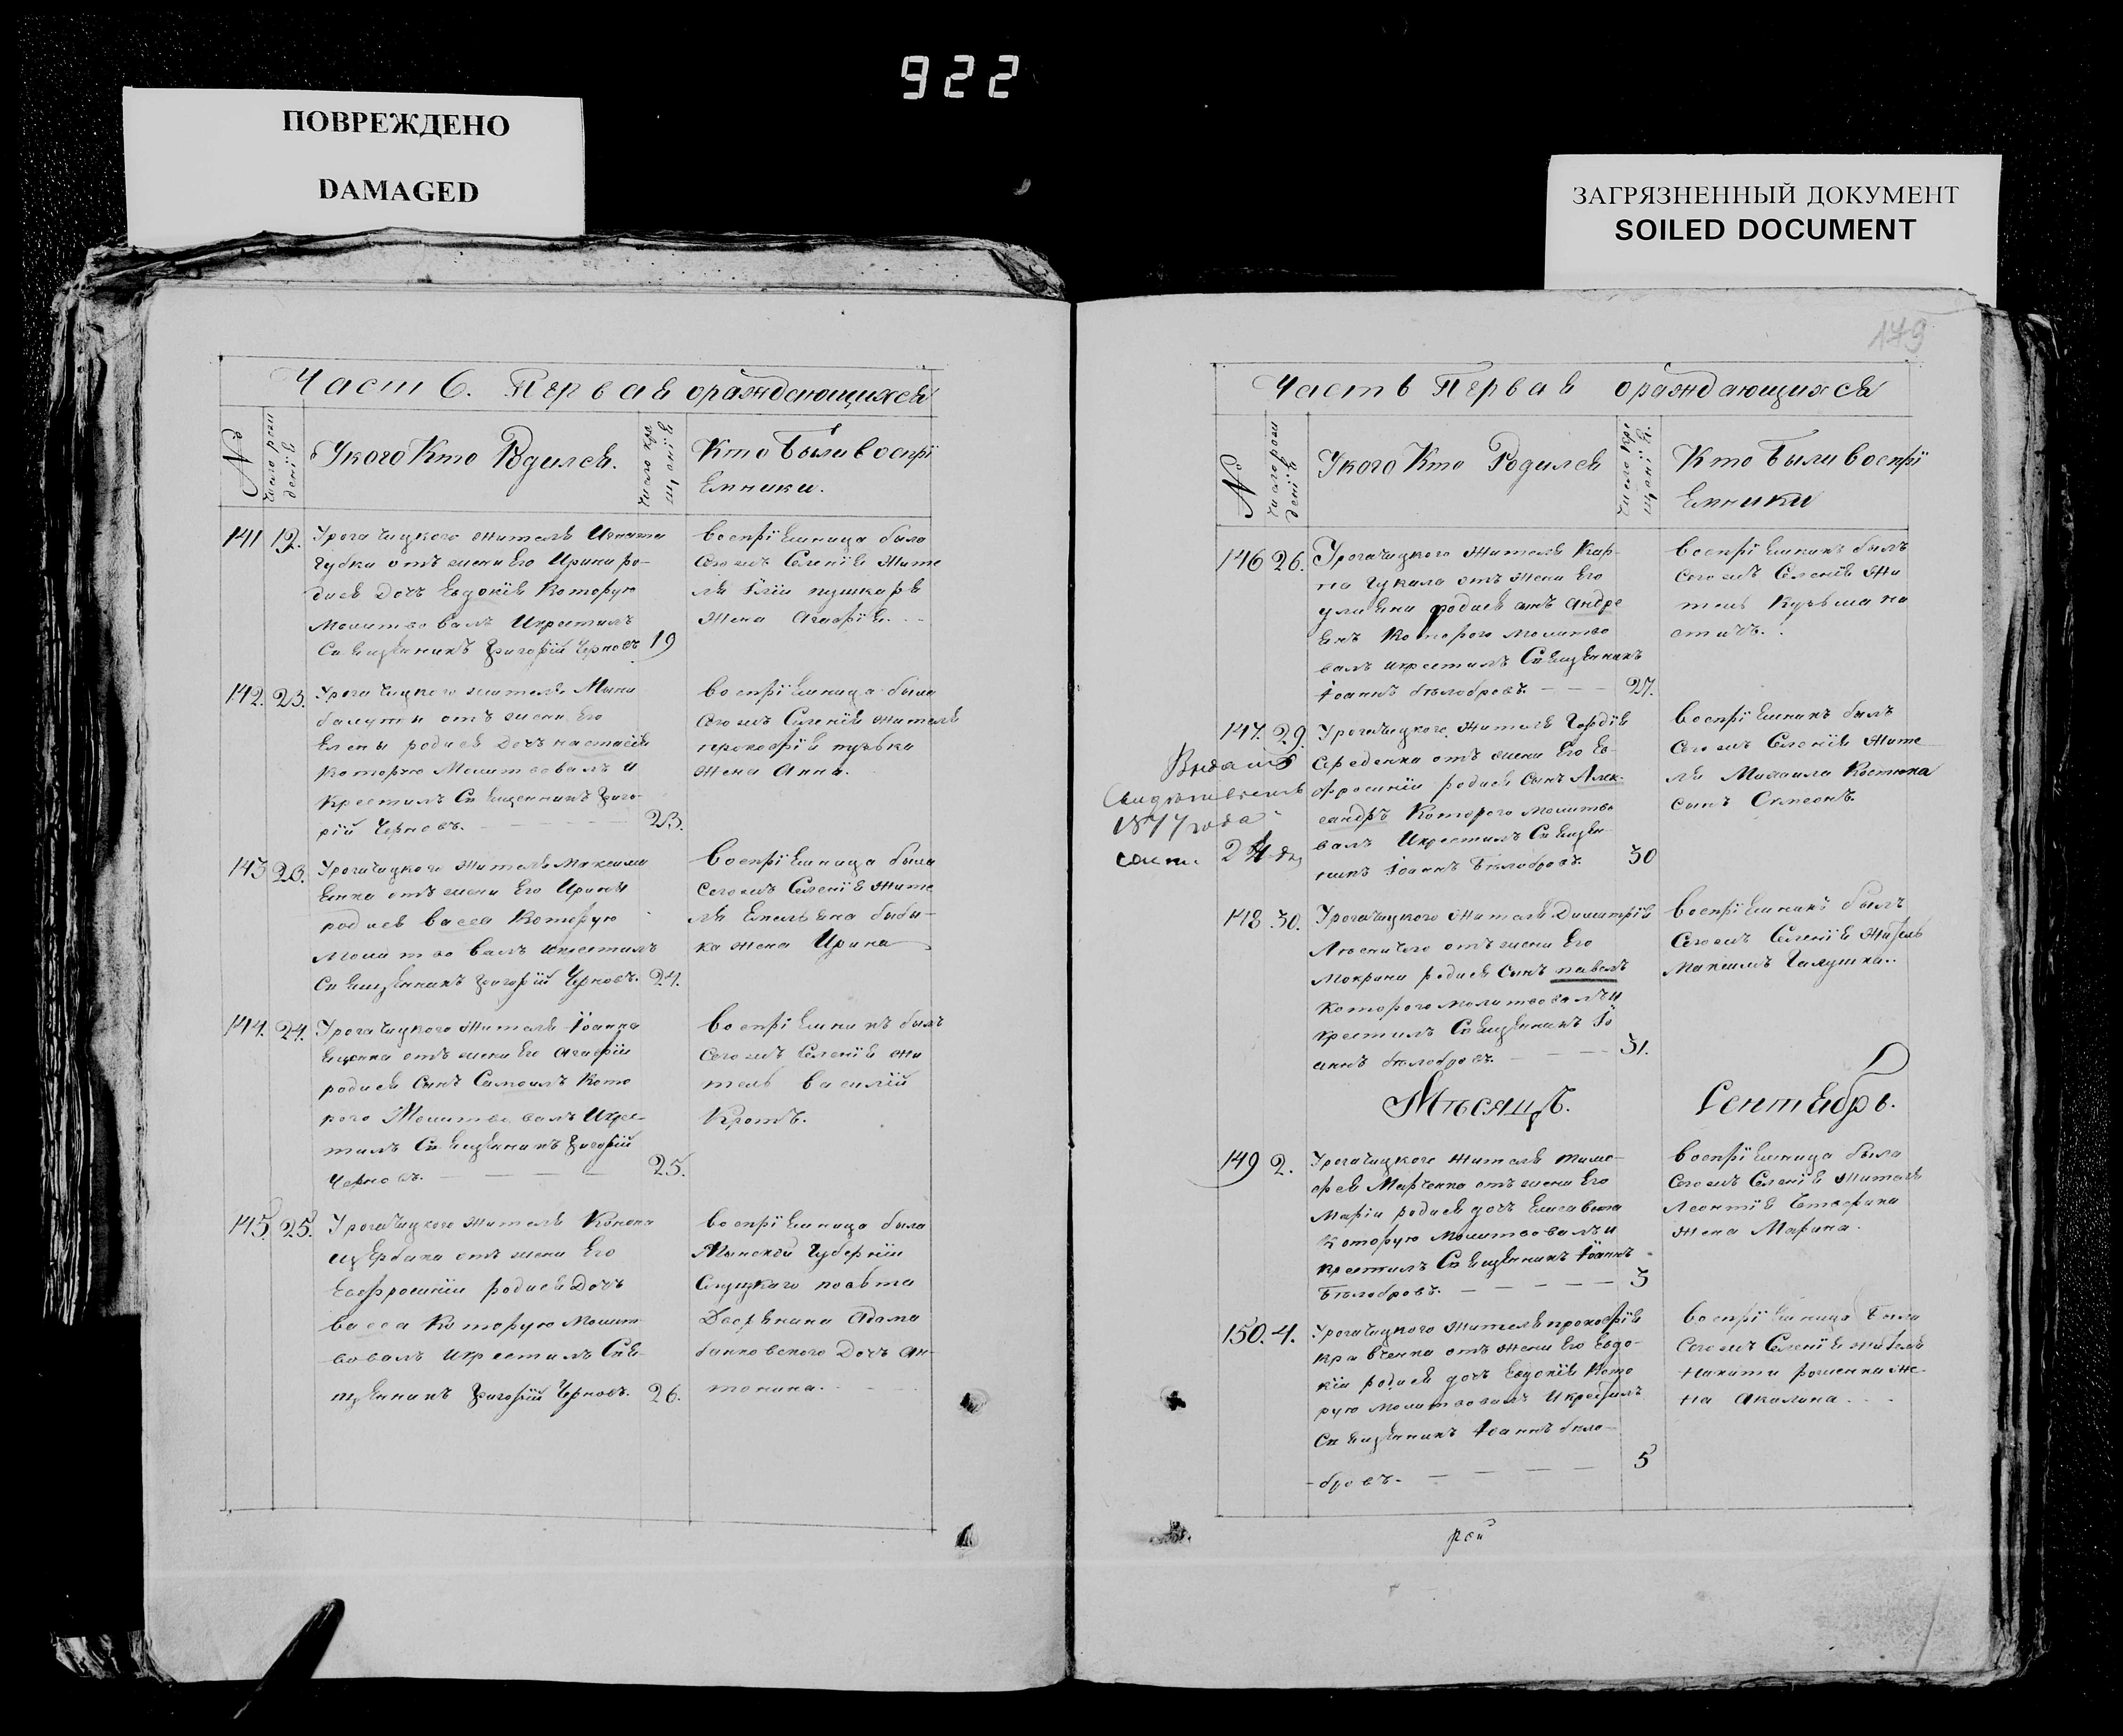 922
ПОВРЕЖДЕНО
DAMAGED
ЗАГРЯЗНЕННЫЙ ДОКУМЕНТ
SOILED DOCUMENT
Часть. Первая ораждающихся
№
число рож
денія
Укого Кто Родился.
число кре
щенія
Кто Были воспрі
емники.
141 12. Урогачицкого жителя Игната
Губки отъ жени Его Ирини ро-
дися Дочь Евдокія Которую
Молитвовалъ Икрестилъ
Священникъ Григорій Черновъ 19
воспріемница была
Сегожъ Селенія Жите
ля Іліи пушкаря
Жена Агафія.
142. 23. Урогачицкого жителя Мины
отъ жени Его
Елены родися Дочь настасія
Которую Молитвовалъ и
Крестилъ Священникъ Григо-
рій Черновъ. 23.
воспріемница была
Сегожъ Селенія жителя
прокофія
жена Анна.
143 23. Урогачицкого жителя Максима
отъ жени Его Ирины
родися васса Которую
Молитвовалъ икрестилъ
Священникъ Григорій Черновъ. 24.
воспріемница была
Сегожъ Селенія жите
ля Емельяна биби-
ка жена Ирина
144. 24. Урогачицкого жителя Іоанна
отъ жени Его Агафіи
родися Сынъ Самоилъ Кото
рого Молитвовалъ Икре-
тилъ Священникъ Григорій
Черновъ. 25.
воспріемникъ былъ
Сегожъ Селенія жи
тель василій
Кротъ.
145. 25. Урогачицкого жителя Конона
щербака отъ жени Его
Евфросиніи родися Дочь
васса Которую Молит-
вовалъ Икрестилъ Свя-
щенникъ Григорій Черновъ. 26.
воспріемница была
Мынской Губерніи
Слуцкаго повѣта
Дворянина Адама
банковского Дочь Ан-
тонина.
179
Часть Первая ораждающихся
№
число рож
денія
Укого Кто Родился
число кре
щенія.
Кто Были воспрі
емники
146 26. Урогачицкого Жителя Кар-
па Цукала отъ Жени Его
улияни родися сынъ Андре
янъ Которого молитво
валъ икрестилъ Священникъ
Іоаннъ бѣлобровъ. 27.
воспріемникъ былъ
Сегожъ Селенія Жи
тель Кузьма
147. 29. Урогачицкого Жителя Гордія
Середенка отъ жени Его Ев-
фросиніи родися Сынъ Алек-
сандръ Которого молитво
валъ Икрестилъ Священ-
никъ Іоаннъ Бѣлобровъ. 30
воспріемникъ былъ
Сегожъ Селенія Жите
ля Михаила Костюка
сынъ Симеонъ.
Видано
Свидетельство
1877 года
24
148 30. Урогачицкого Жителя Димитрія
отъ жени Его
Мокрини родися Сынъ павелъ
Которого молитвовалъ и
крестилъ Священникъ Іо
аннъ бѣлобровъ. 31.
воспріемникъ былъ
Сегожъ Селенія Житель
Максимъ Галушка.
Мѣсяцъ. Сентябрь.
149 2. Урогачицкого Жителя тимо-
фея Марченка отъ жени Его
Маріи родися дочь Елисавета
Которую молитвовалъ и
крестилъ Священникъ Іоаннъ
Бѣлобровъ. 3
воспріемница была
Сегожъ Селенія Жителя
Леонтія
жена Марина.
150. 4. Урогачицкого Жителя прокофія
Кравченка отъ жени Его Евдо-
кіи родися дочь Евдокія Кото
рую молитвовалъ Икрестилъ
Священникъ Іоаннъ бѣло-
бровъ. 5
воспріемница Была
Сегожъ Селенія жителя
Никити Роменка же-
на Акилина.